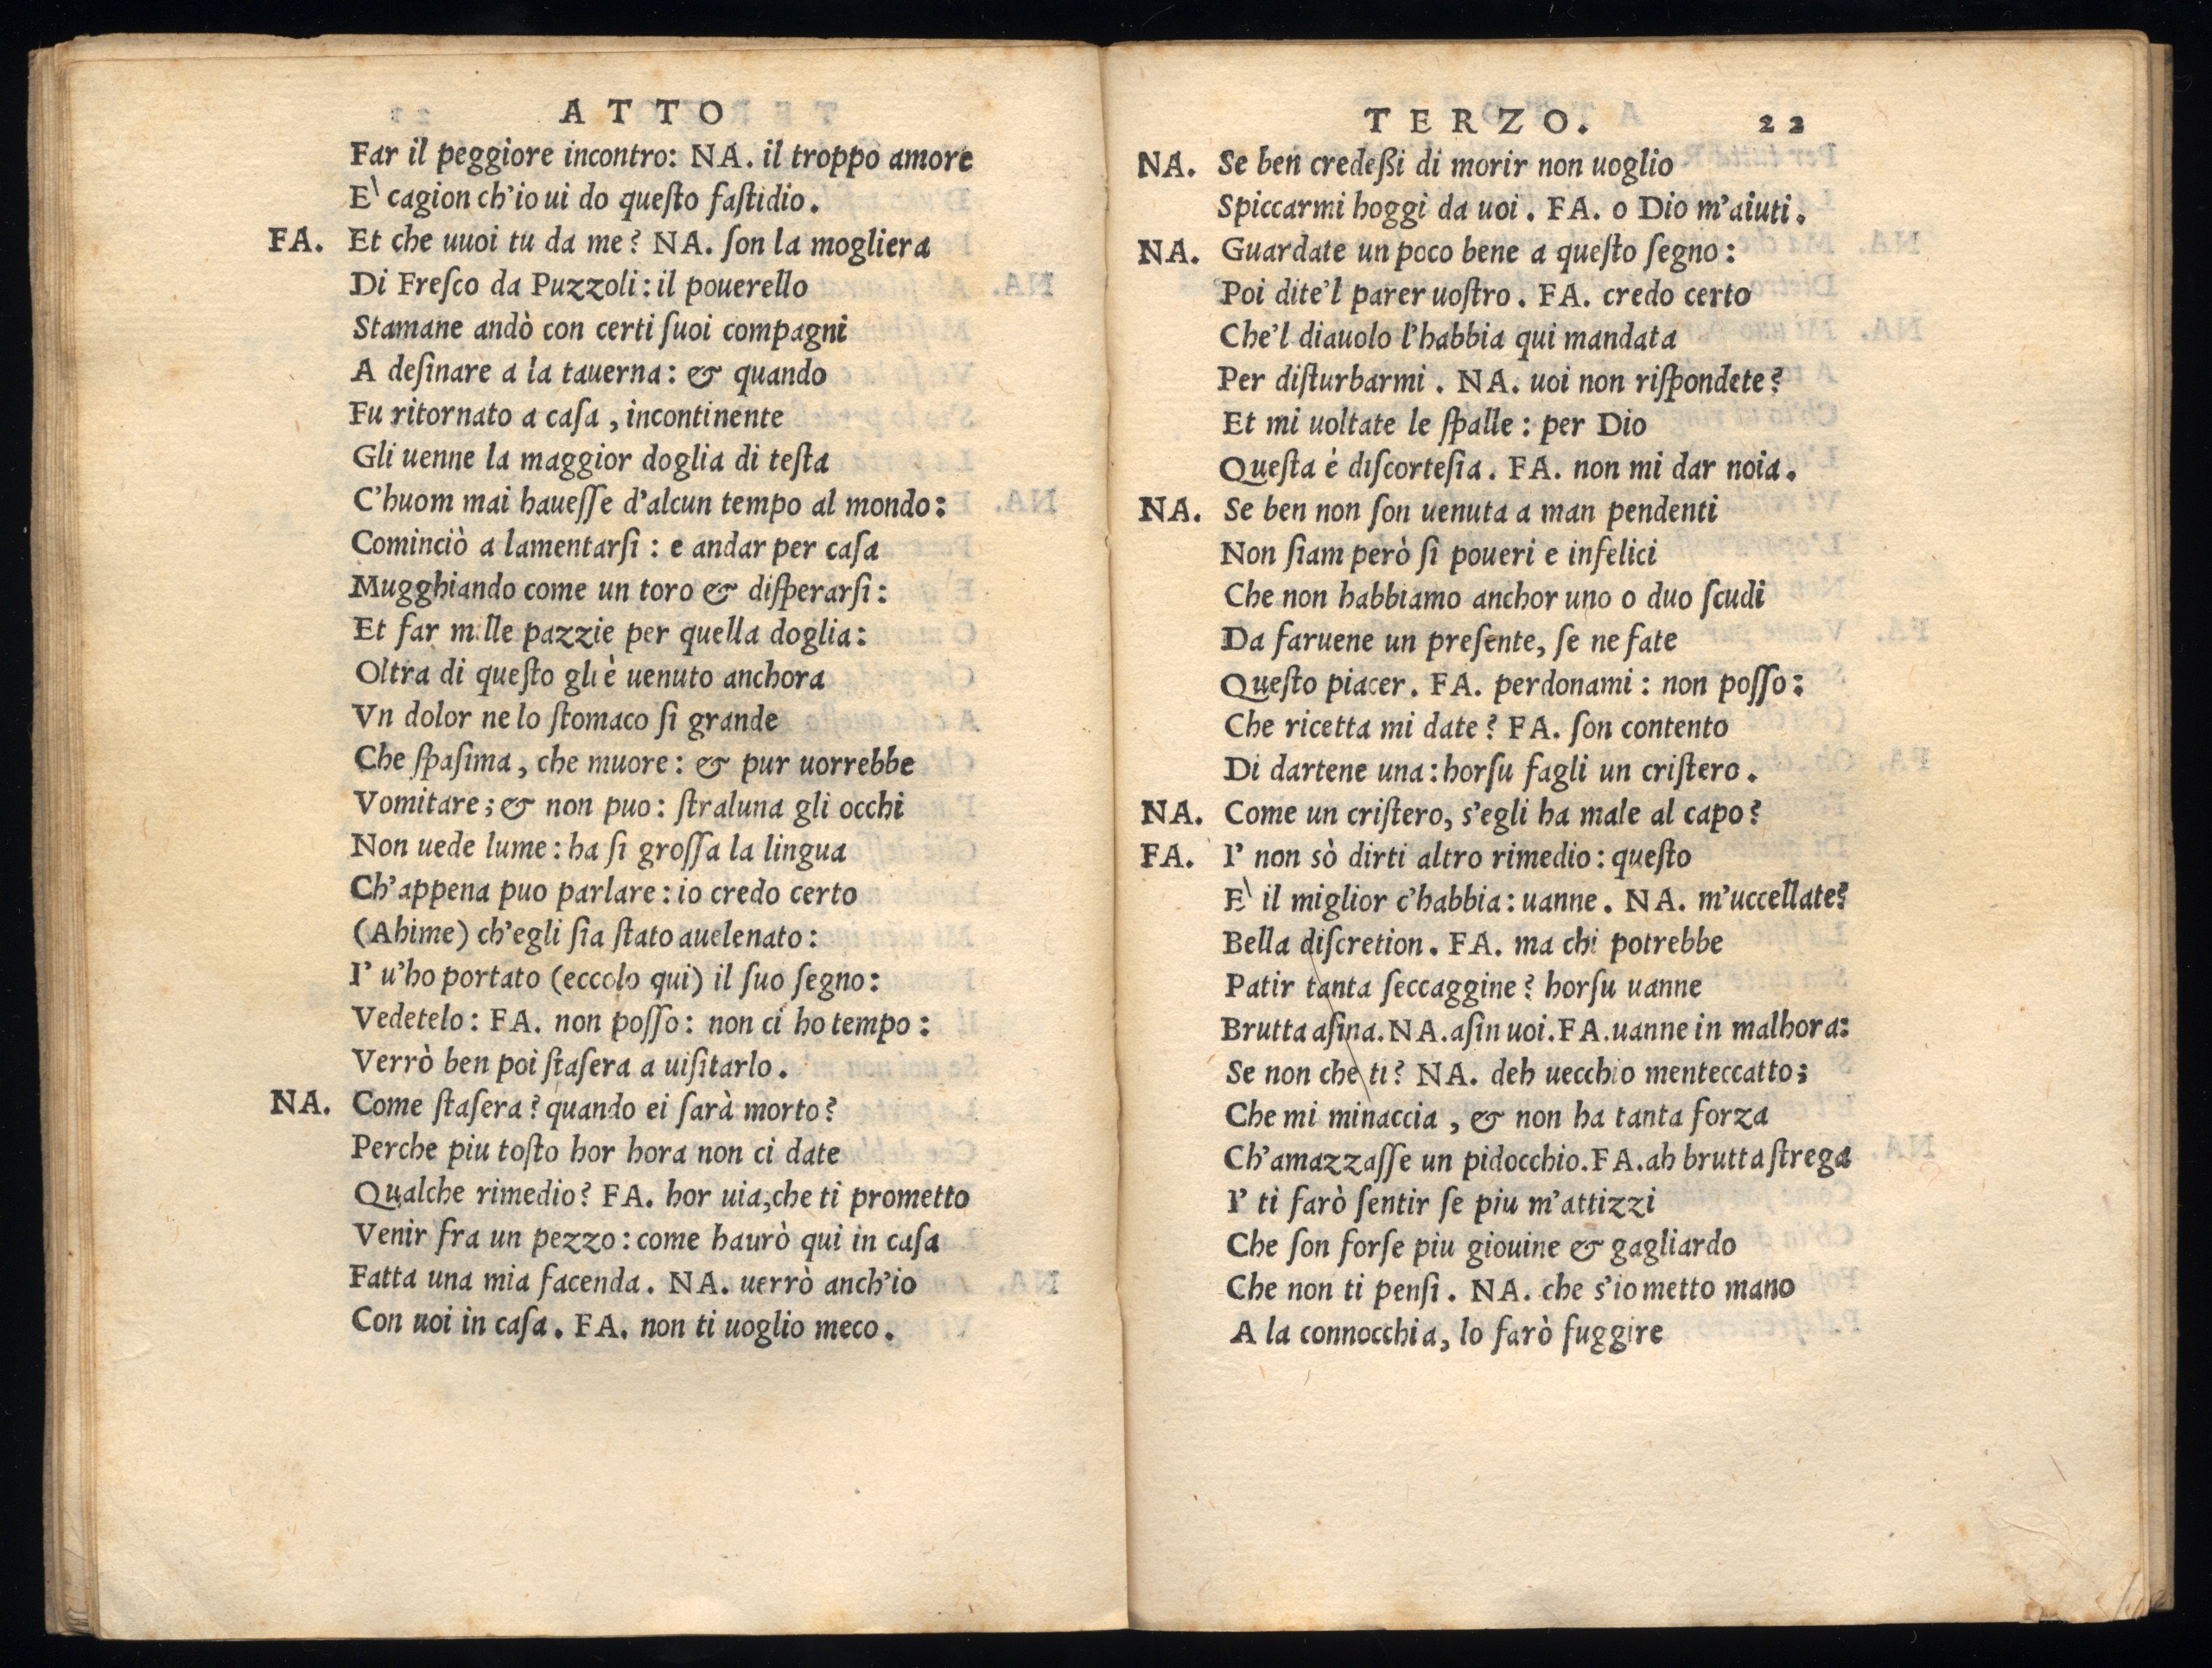 ATTO
Far il peggiore incontro: NA. il troppo amore
E\ cagion ch'io ui do queſto faſtidio.
FA. Et che uuoi tu da me? NA. ſon la mogliera
Di Freſco da Puzzoli: il pouerello
Stamane andò con certi ſuoi compagni
A deſinare a la tauerna: & quando
Fu ritornato a caſa, incontinente
Gli uenne la maggior doglia di teſta
C'huom mai haueſſe d'alcun tempo al mondo:
Cominciò a lamentarſi: e andar per caſa
Mugghiando come un toro & diſperarſi:
Et far mille pazzie per quella doglia:
Oltra di queſto gli è uenuto anchora
Vn dolor ne lo ſtomaco ſi grande
Che ſpaſima, che muore: & pur uorrebbe
Vomitare; & non puo: ſtraluna gli occhi
Non uede lume: ha ſi groſſa la lingua
Ch'appena puo parlare: io credo certo
(Ahime) ch'egli ſia ſtato auelenato:
I' u'ho portato (eccolo qui) il ſuo ſegno:
Vedetelo: FA. non poſſo: non ci ho tempo:
Verrò ben poi ſtaſera a uiſitarlo.
NA. Come ſtaſera? quando ei ſarà morto?
Perche piu toſto hor hora non ci date
Qualche rimedio? FA. hor uia, che ti prometto
Venir fra un pezzo: come haurò qui in caſa
Fatta una mia facenda. NA. uerrò anch'io
Con uoi in caſa. FA. non ti uoglio meco.
TERZO. 22
NA. Se ben credeßi di morir non uoglio
Spiccarmi hoggi da uoi. FA. o Dio m'aiuti.
NA. Guardate un poco bene a queſto ſegno:
Poi dite'l parer uoſtro. FA. credo certo
Che'l diauolo l'habbia qui mandata
Per diſturbarmi. NA. uoi non riſpondete?
Et mi uoltate le ſpalle: per Dio
Queſta è diſcorteſia. FA. non mi dar noia.
NA. Se ben non ſon uenuta a man pendenti
Non ſiam però ſi poueri e infelici
Che non habbiamo anchor uno o duo ſcudi
Da faruene un preſente, ſe ne fate
Queſto piacer. FA. perdonami: non poſſo:
Che ricetta mi date? FA. ſon contento
Di dartene una: horſu fagli un criſtero.
NA. Come un criſtero, s'egli ha male al capo?
FA. I' non sò dirti altro rimedio: queſto
E\ il miglior c'habbia: uanne. NA. m'uccellate?
Bella diſcretion. FA. ma chi potrebbe
Patir tanta ſeccaggine? horſu uanne
Brutta aſina. NA. aſin uoi. FA. uanne in malhora:
Se non che ti? NA. deh uecchio menteccatto;
Che mi minaccia, & non ha tanta forza
Ch'amazzaſſe un pidocchio. FA. ah brutta ſtrega
I' ti farò ſentir ſe piu m'attizzi
Che ſon forſe piu giouine & gagliardo
Che non ti penſi. NA. che s'io metto mano
A la connocchia, lo farò fuggire